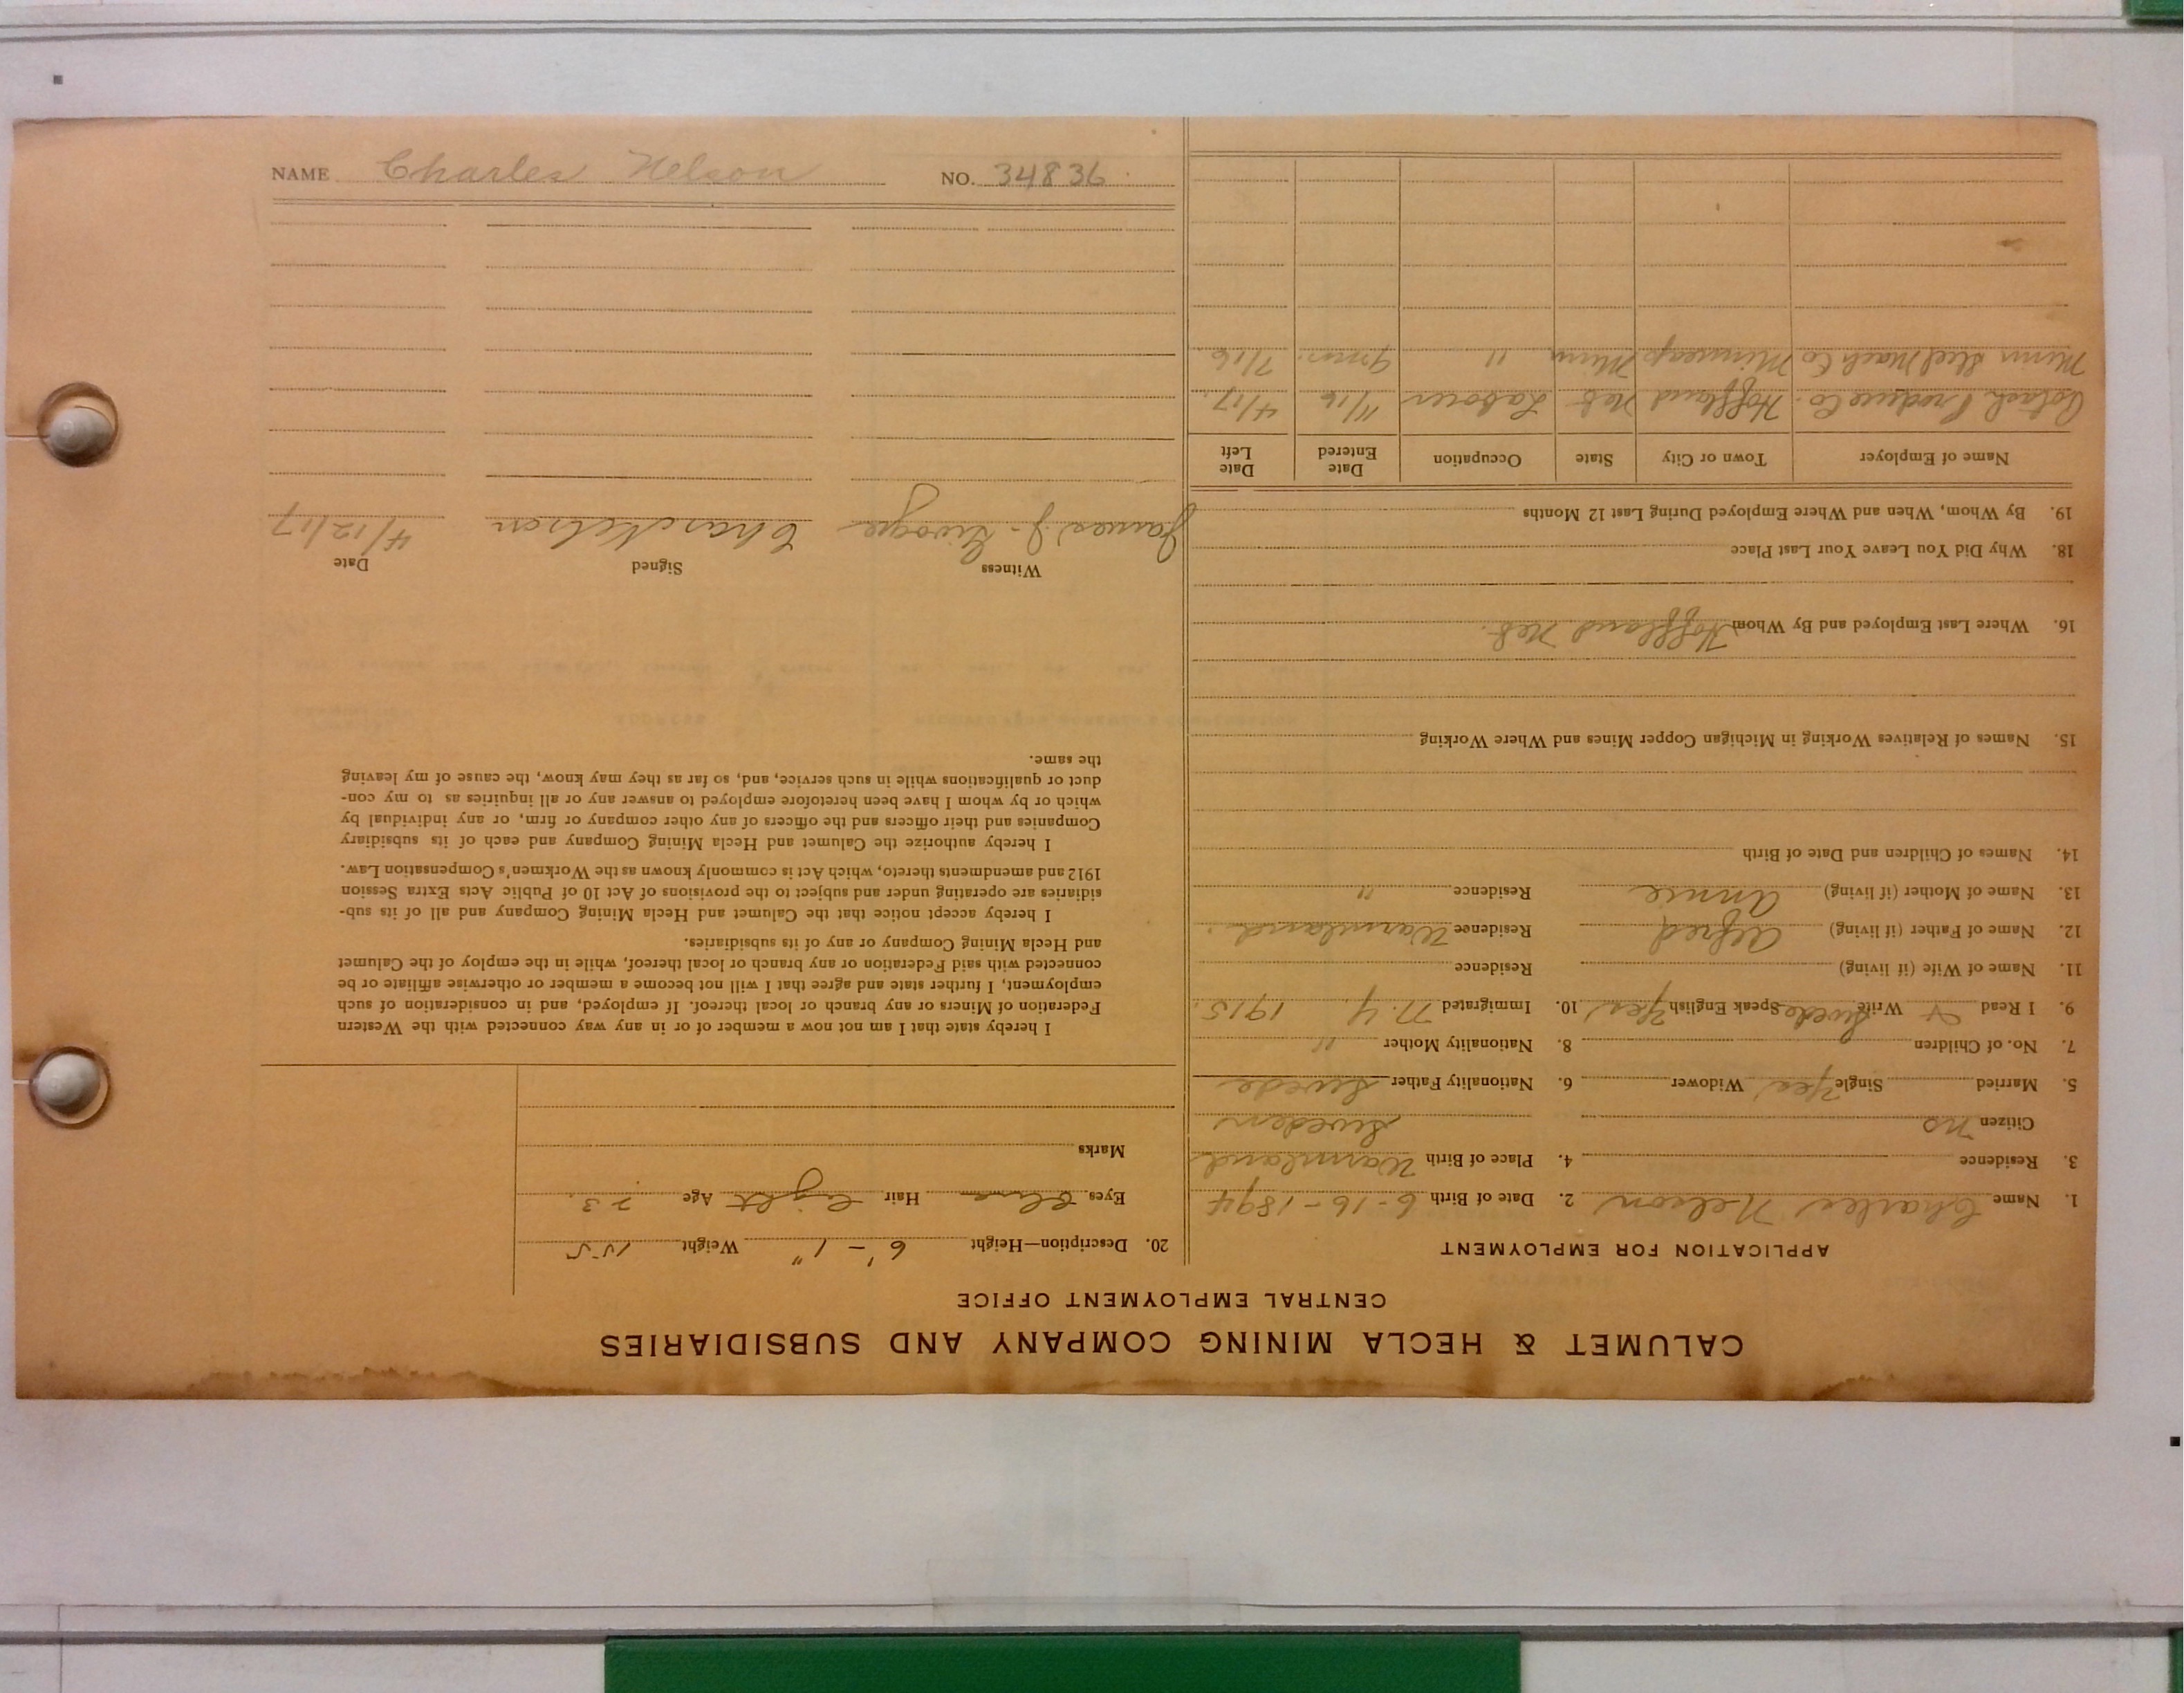 NAME Charles Nelson NO. 34836
CALUMET & HECLA MINING COMPANY AND SUBSIDIARIES
CENTRAL EMPLOYMENT OFFICE
APPLICATION FOR EMPLOYMENT
1. Name Charles Nelson 2. Date of Birth 6-16-1894
3. Residence 4. Place of Birth Warmland
Citizen no Sweden
5. Married Single Yes Widower 6. Nationality Father Swede
7. No. of Children 8. Nationality Mother "
9. I Read & Write Swede Speak English Yes 10. Immigrated N.Y. 1915
11. Name of Wife (if living) Residence
12. Name of Father (if living) Alfred Residence Warmland.
13. Name of Mother (if living) Annie Residence "
14. Names of Children and Date of Birth
15. Names of Relatives Working in Michigan Copper Mines and Where Working
16. Where Last Employed and By Whom Hoffland Neb.
18. Why Did You Leave Your Last Place
19. By Whom, When and Where Employed During Last 12 Months
Name of Employer Town or City State Occupation Date Entered Date Left
Produce Co. Hoffland Neb Laborer 11/16 4/17.
Minn Steel Mach Co Minneap Minn " 9 mos. 7/16.
20. Description—Height 6'-1" Weight 155
Eyes Blue Hair Light Age 23.
Marks
I hereby state that I am not now a member of or in any way connected with the Western
Federation of Miners or any branch or local thereof. If employed, and in consideration of such
employment, I further state and agree that I will not become a member or otherwise affiliate or be
connected with said Federation or any branch or local thereof, while in the employ of the Calumet
and Hecla Mining Company or any of its subsidiaries.
I hereby accept notice that the Calumet and Hecla Mining Company and all of its sub-
sidiaries are operating under and subject to the provisions of Act 10 of Public Acts Extra Session
1912 and amendments thereto, which Act is commonly known as the Workmen's Compensation Law.
I hereby authorize the Calumet and Hecla Mining Company and each of its subsidiary
Companies and their officers and the officers of any other company or firm, or any individual by
which or by whom I have been heretofore employed to answer any or all inquiries as to my con-
duct or qualifications while in such service, and, so far as they may know, the cause of my leaving
the same.
Witness Signed Date
James J. Chas Nelson 4/12/17